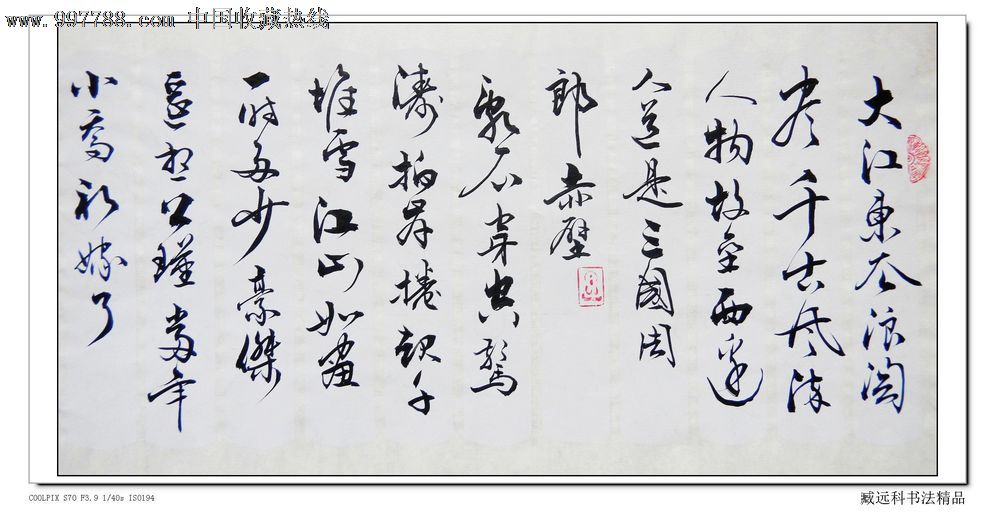 www.997788.com 中国收藏热线
大江東去浪淘
尽千古风流
人物故垒西邊
人道是三國周
郎赤壁
亂石穿空驚
濤拍岸捲起千
堆雪江山如畫
一時多少豪傑
遥想公瑾當年
小喬初嫁了
COOLPIX S70 F3.9 1/40s ISO194
臧远科书法精品